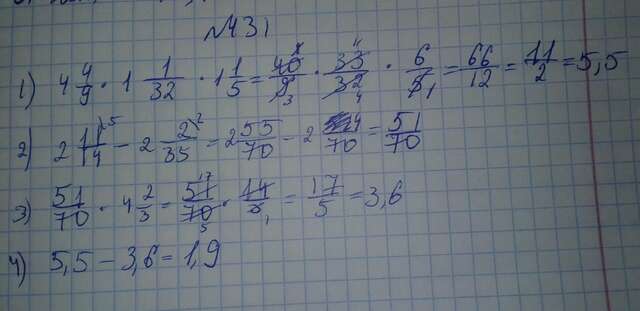 №431
1) 4 4/9 · 1 1/32 · 1 1/5 = 40/9 · 33/32 · 6/5 = 66/12 = 11/2 = 5,5
2) 2 11/14 - 2 2/35 = 2 55/70 - 2 4/70 = 51/70
3) 51/70 · 4 2/3 = 51/70 · 14/3 = 17/5 = 3,6
4) 5,5 - 3,6 = 1,9